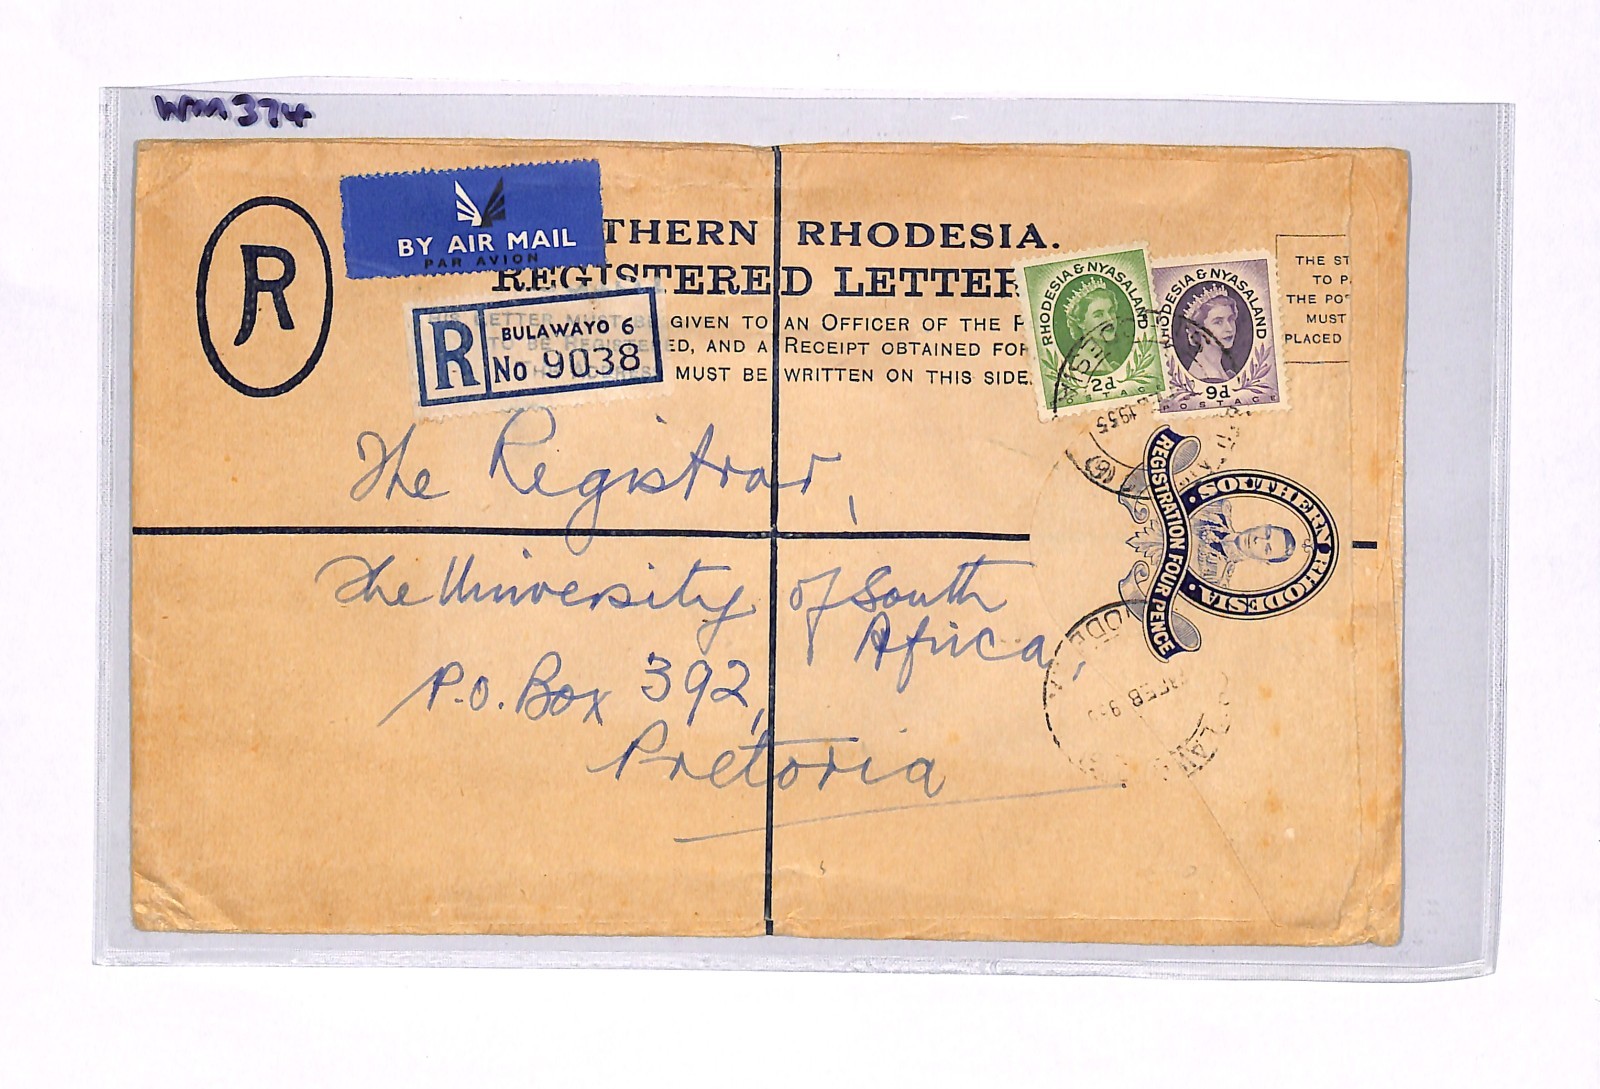 Wm374
R
BY AIR MAIL
PAR AVION
THERN RHODESIA.
REGISTERED LETTER
THE ST
TO P.
THE POS
MUST
PLACED
HIS LETTER MUST BE GIVEN TO AN OFFICER OF THE P
TO BE REGISTERED, AND A RECEIPT OBTAINED FOR
MUST BE WRITTEN ON THIS SIDE.
R
BULAWAYO 6
No 9038
RHODESIA & NYASALAND
2d
POSTAGE
RHODESIA & NYASALAND
9d
POSTAGE
1955
The Registrar,
SOUTHERN RHODESIA
REGISTRATION FOUR PENCE
The University of South
Africa,
P.O. Box 392,
FEB
Pretoria